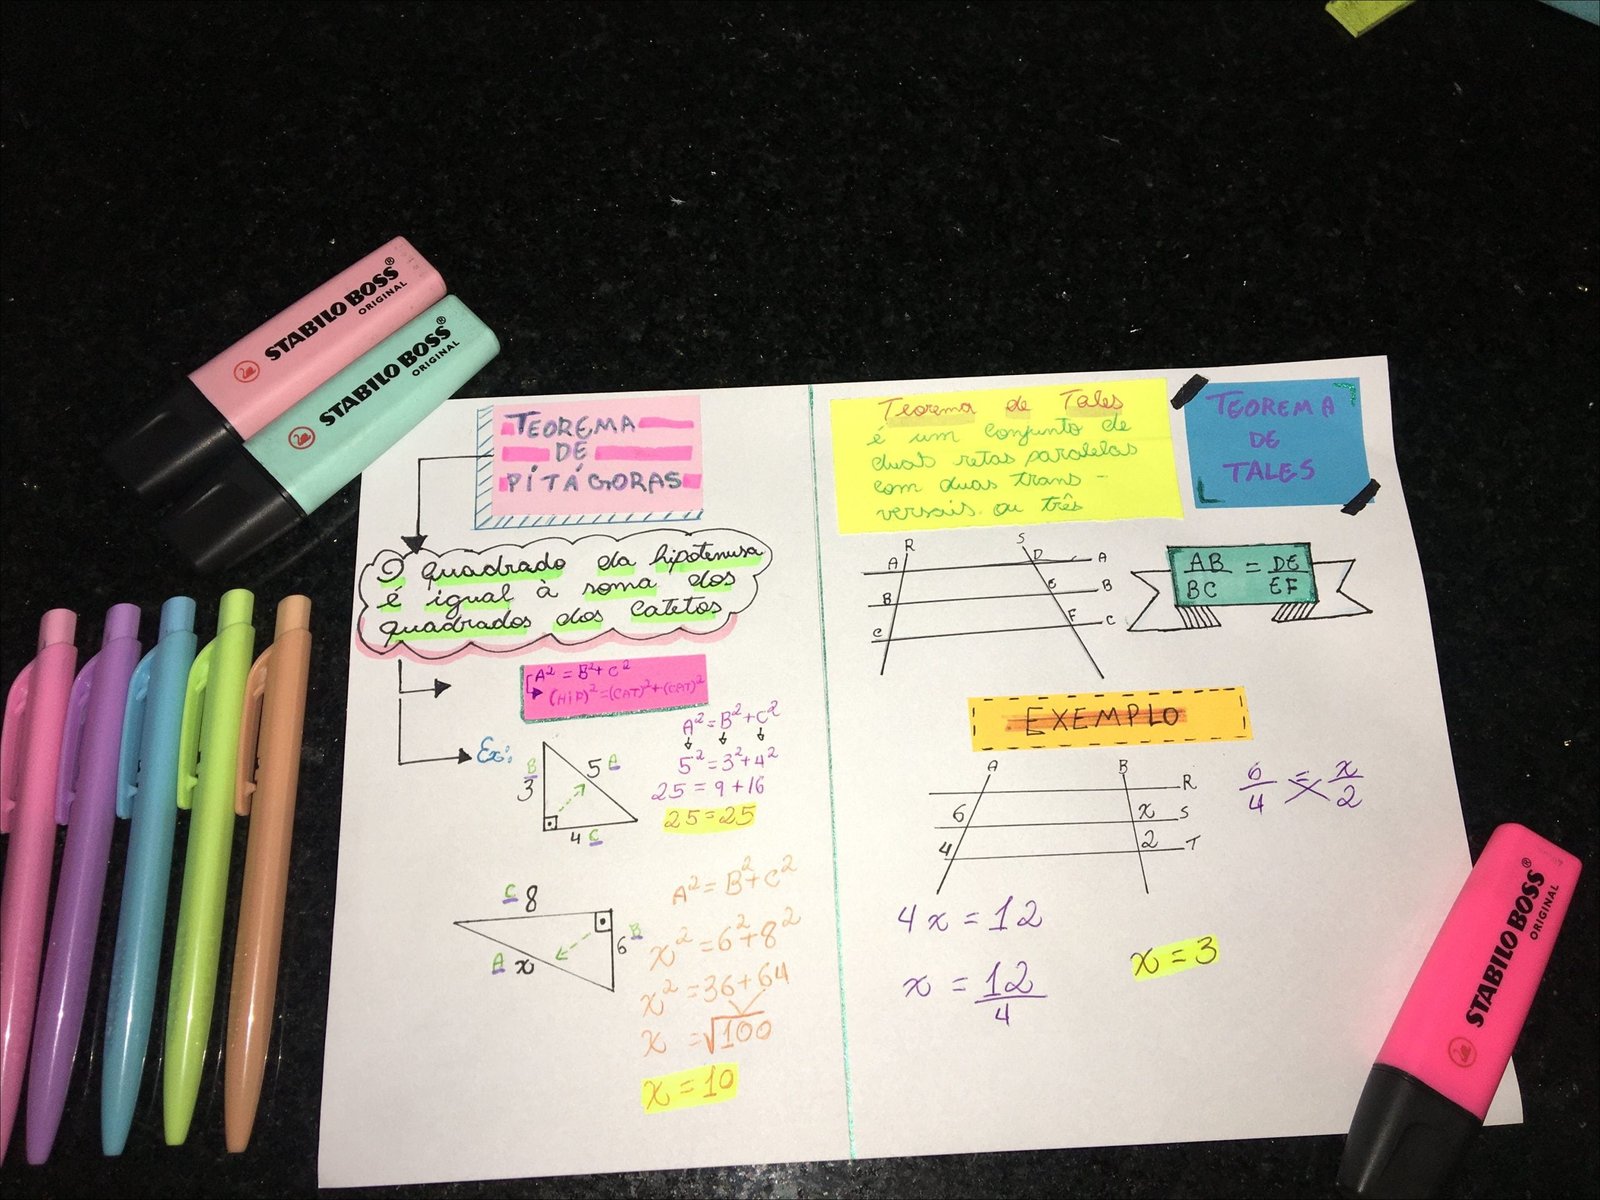 STABILO BOSS®
ORIGINAL
STABILO BOSS®
ORIGINAL
TEOREMA
DE
PITÁGORAS
O quadrado da hipotenusa
é igual à soma dos
quadrados dos catetos
A² = B² + C²
(HIP)² = (CAT)² + (CAT)²
Ex:
B
3
5 A
4 C
A² = B² + C²
5² = 3² + 4²
25 = 9 + 16
25 = 25
C 8
6 B
A x
A² = B² + C²
x² = 6² + 8²
x² = 36 + 64
x = √100
x = 10
Teorema de Tales
é um conjunto de
duas retas paralelas
com duas trans -
versais ou três
TEOREMA
DE
TALES
R S
A D A
B E B
C F C
AB = DE
BC EF
EXEMPLO
A B
R
6 x S
4 2 T
6 = x
4 2
4x = 12
x = 12
4
x = 3
STABILO BOSS®
ORIGINAL